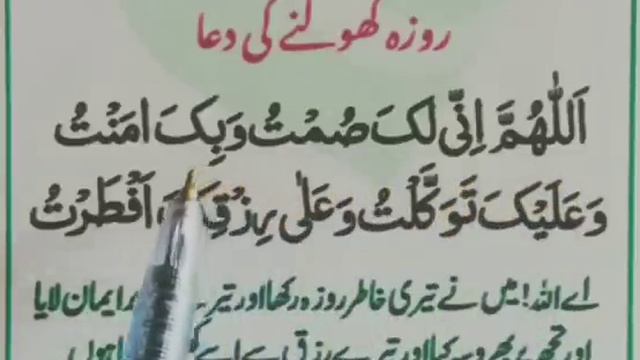 روزہ کھولنے کی دعا
اَللّٰهُمَّ اِنِّی لَکَ صُمْتُ وَبِکَ اٰمَنْتُ
وَعَلَیْکَ تَوَکَّلْتُ وَعَلٰی رِزْقِکَ اَفْطَرْتُ
اے اللہ! میں نے تیری خاطر روزہ رکھا اور تیرے ایمان لایا
اور تجھ پر بھروسہ کیا اور تیرے رزق سے